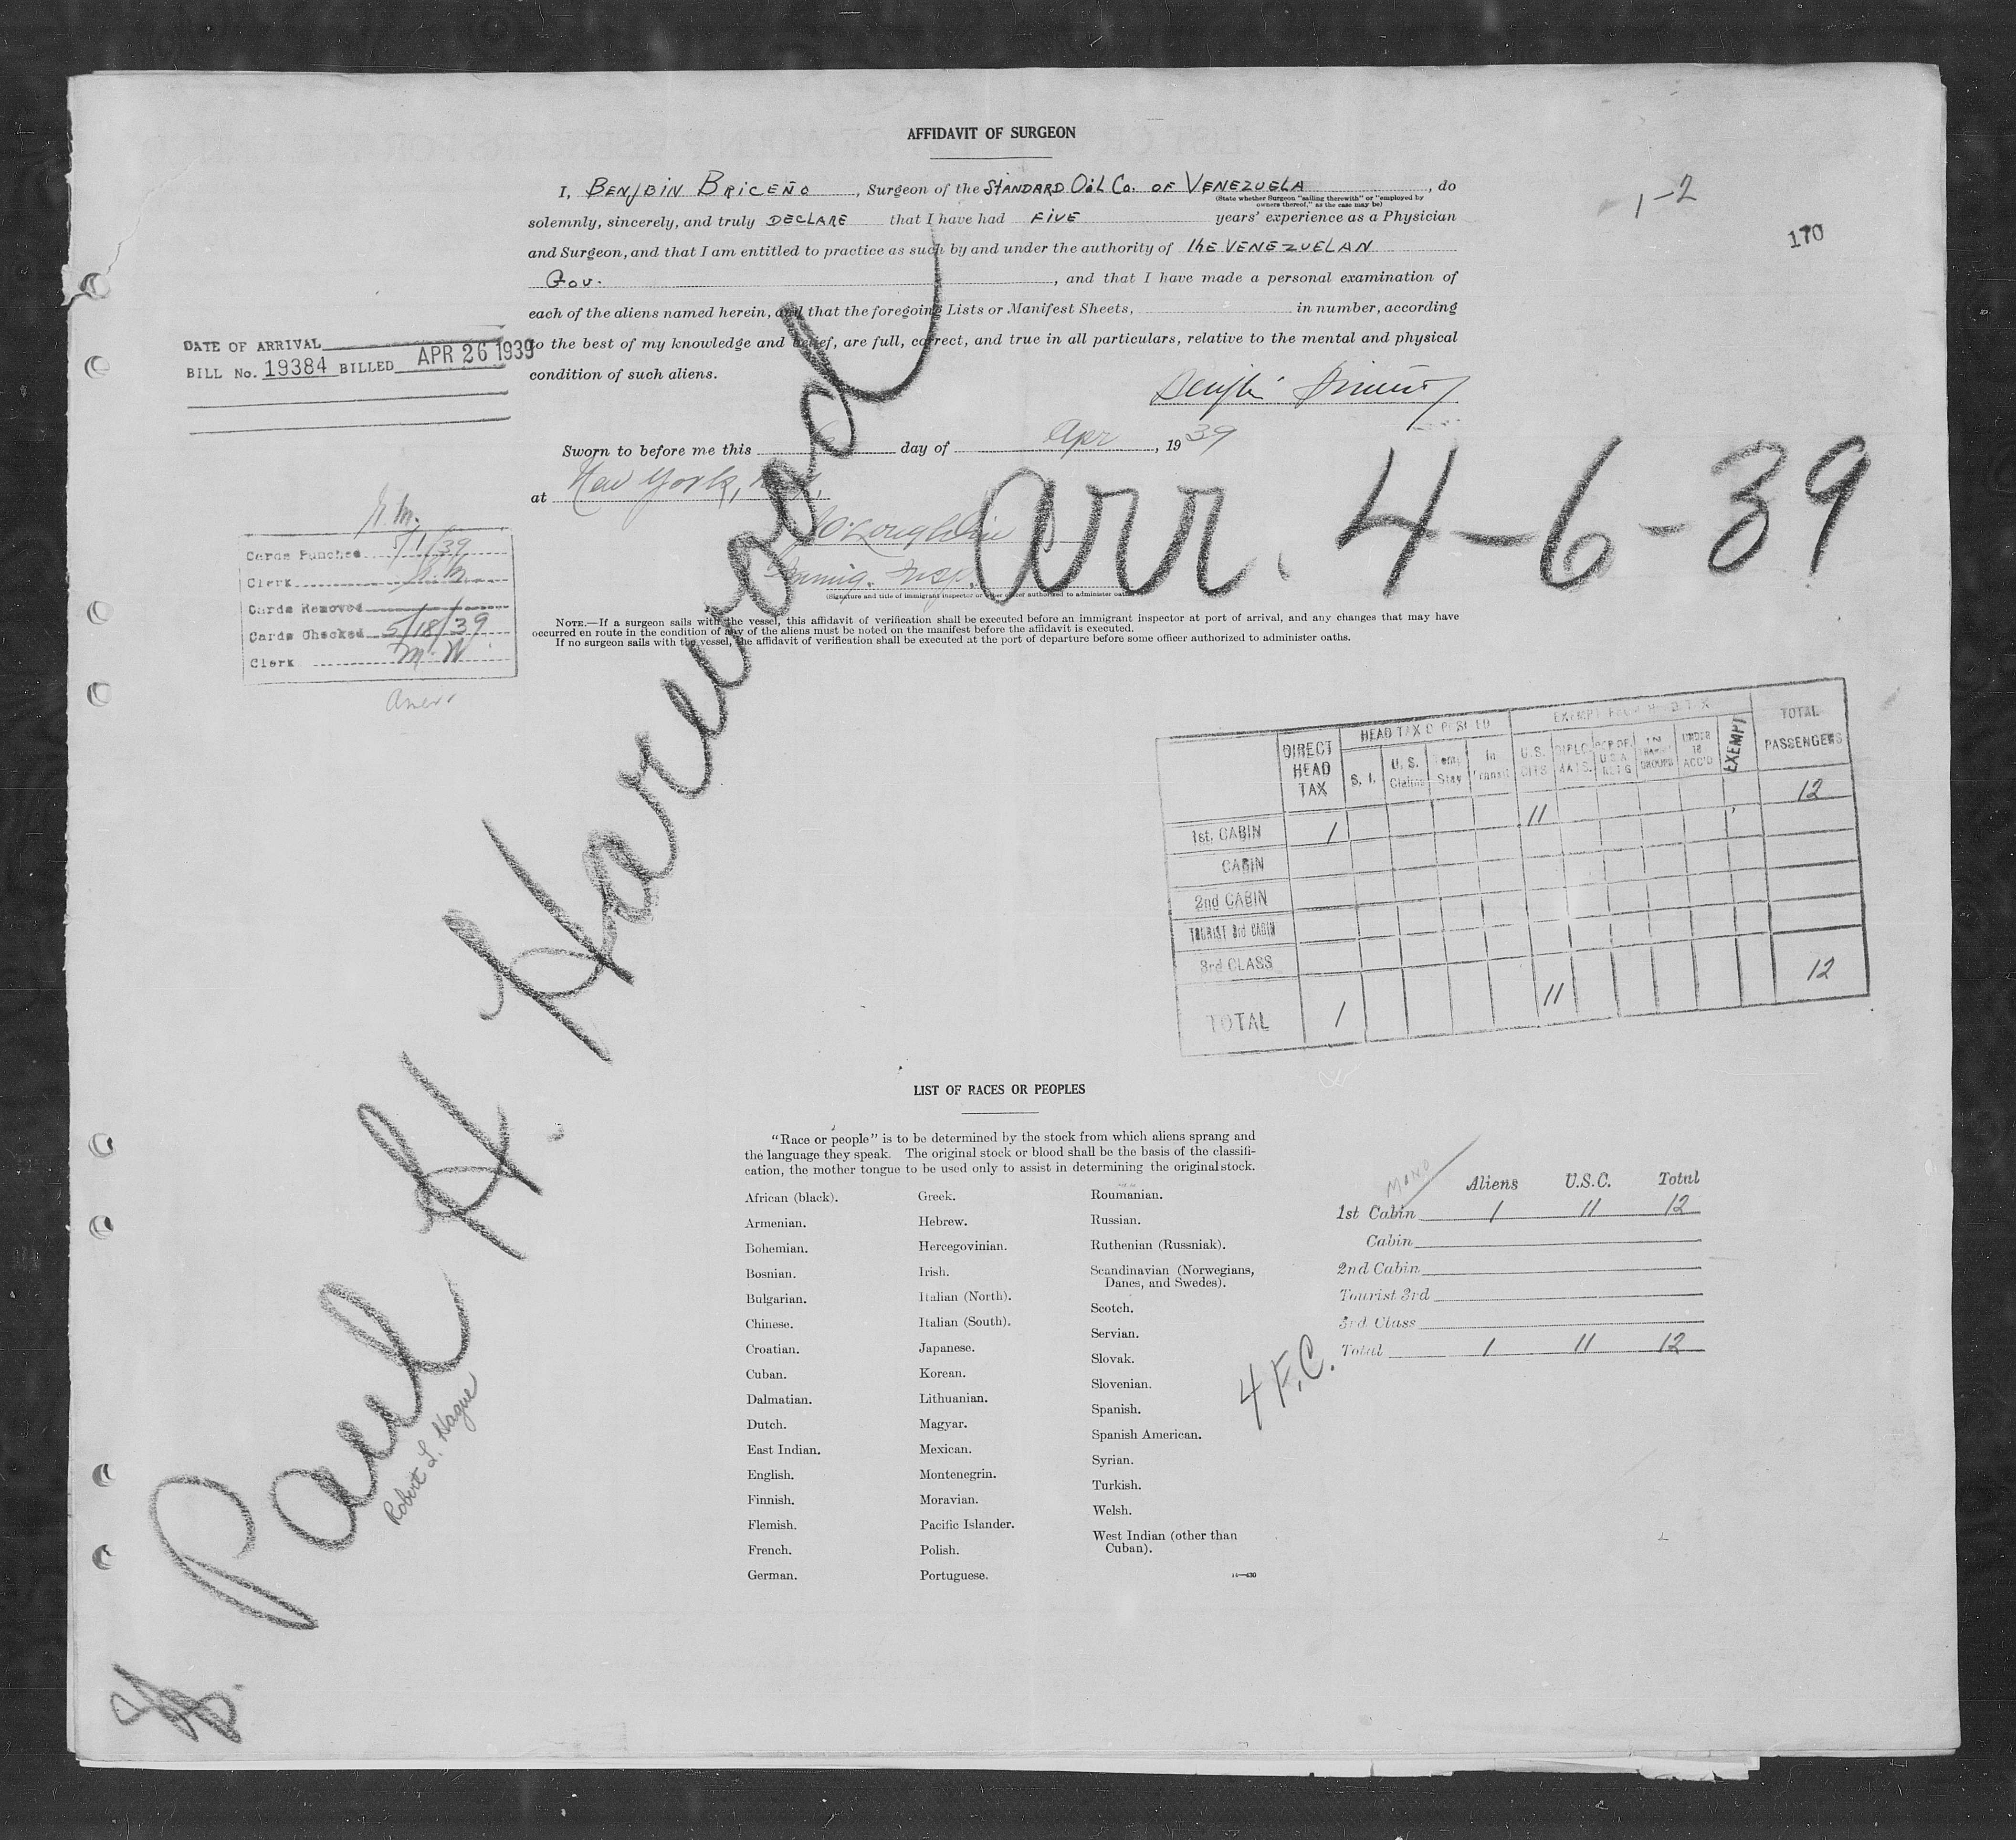 AFFIDAVIT OF SURGEON
I, BENJBIN BRICEÑO, Surgeon of the STANDARD OiL Co. OF VENEZUELA, do
(State whether Surgeon "sailing therewith" or "employed by owners thereof," as the case may be)
solemnly, sincerely, and truly DECLARE that I have had FIVE years' experience as a Physician
and Surgeon, and that I am entitled to practice as such by and under the authority of thE VENEZUELAN
Gov., and that I have made a personal examination of
each of the aliens named herein, and that the foregoing Lists or Manifest Sheets, in number, according
to the best of my knowledge and belief, are full, correct, and true in all particulars, relative to the mental and physical
condition of such aliens.
1-2
170
DATE OF ARRIVAL
BILL No. 19384 BILLED APR 26 1939
Sworn to before me this day of Apr, 1939
at New York,
O'Loughlin
Immig. Insp.
(Signature and title of immigrant inspector or other officer authorized to administer oaths)
arr. 4-6-39
Cards Punched
Clerk
Cards Removed
Cards Checked 5/18/39
Clerk M W
NOTE.—If a surgeon sails with the vessel, this affidavit of verification shall be executed before an immigrant inspector at port of arrival, and any changes that may have
occurred en route in the condition of any of the aliens must be noted on the manifest before the affidavit is executed.
If no surgeon sails with the vessel, the affidavit of verification shall be executed at the port of departure before some officer authorized to administer oaths.
Paul H. Harwood
Robert L. Hague
DIRECT HEAD TAX
HEAD TAX DEPOSITED
S. I.
U. S. Claims
Temp Stay
In Transit
EXEMPT FROM HEAD TAX
U. S. CITS
DIPLOMATS.
UNDER 16 ACC'D
EXEMPT
TOTAL PASSENGERS
1st. CABIN 1 11 12
CABIN
2nd CABIN
TOURIST 3rd CABIN
3rd CLASS
TOTAL 1 11 12
LIST OF RACES OR PEOPLES
"Race or people" is to be determined by the stock from which aliens sprang and
the language they speak. The original stock or blood shall be the basis of the classifi-
cation, the mother tongue to be used only to assist in determining the original stock.
African (black).
Armenian.
Bohemian.
Bosnian.
Bulgarian.
Chinese.
Croatian.
Cuban.
Dalmatian.
Dutch.
East Indian.
English.
Finnish.
Flemish.
French.
German.
Greek.
Hebrew.
Hercegovinian.
Irish.
Italian (North).
Italian (South).
Japanese.
Korean.
Lithuanian.
Magyar.
Mexican.
Montenegrin.
Moravian.
Pacific Islander.
Polish.
Portuguese.
Roumanian.
Russian.
Ruthenian (Russniak).
Scandinavian (Norwegians,
Danes, and Swedes).
Scotch.
Servian.
Slovak.
Slovenian.
Spanish.
Spanish American.
Syrian.
Turkish.
Welsh.
West Indian (other than
Cuban).
Aliens U.S.C. Total
1st Cabin 1 11 12
Cabin
2nd Cabin
Tourist 3rd
3rd Class
Total 1 11 12
4 F.C.